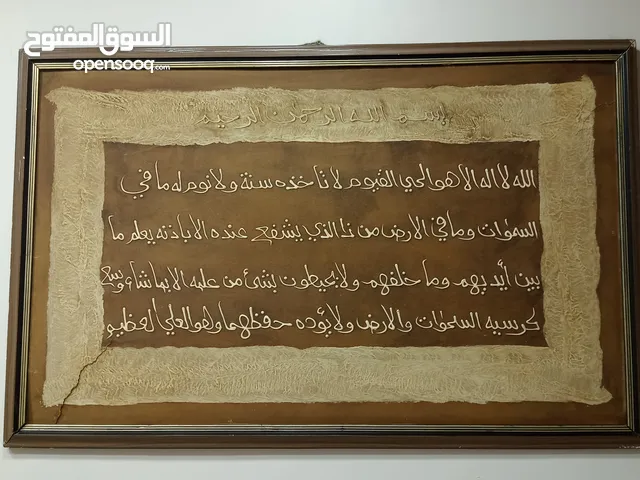 السوق المفتوح
opensooq.com
بسم الله الرحمن الرحيم
الله لا اله الا هو الحي القيوم لا تاخذه سنة ولا نوم له ما في
السموات وما في الارض من ذا الذي يشفع عنده الا باذنه يعلم ما
بين أيديهم وما خلفهم ولا يحيطون بشئ من علمه الا بما شاء وسع
كرسيه السموات والارض ولا يؤده حفظهما وهو العلي العظيم